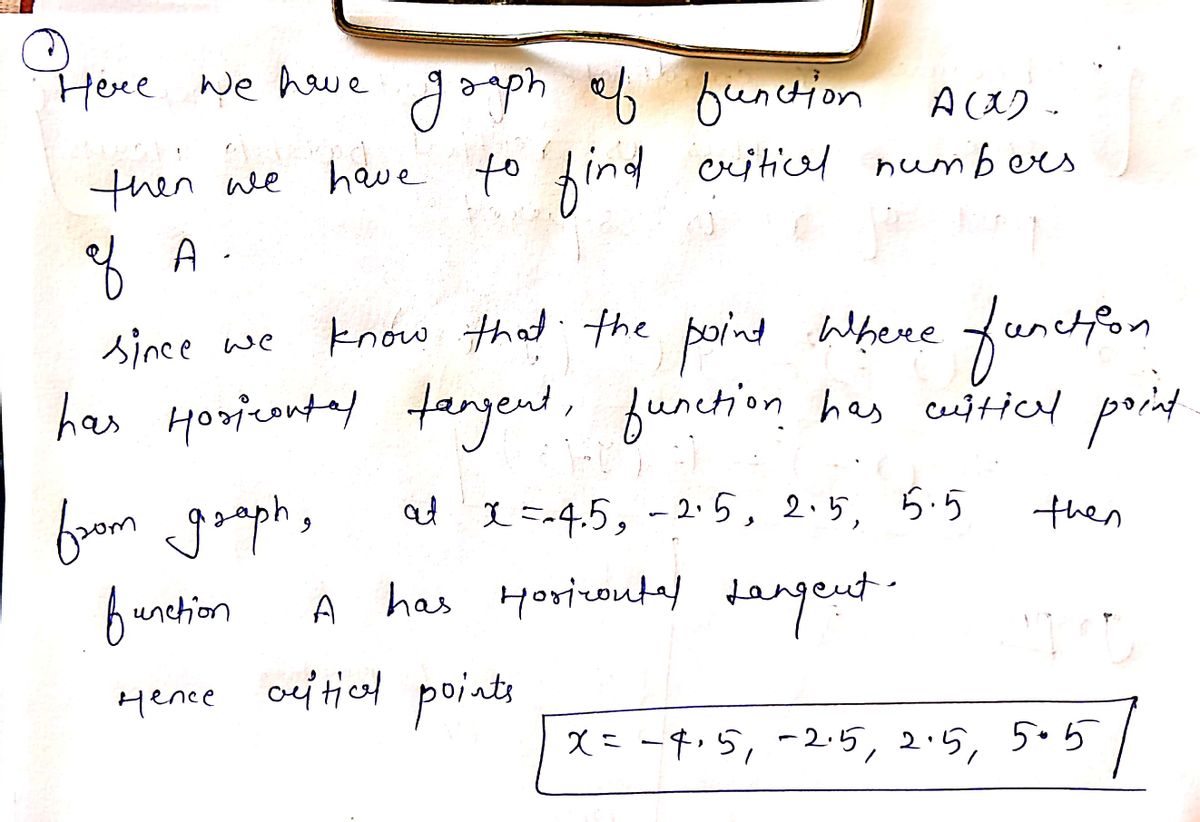 ①
Here we have graph of function A(x).
then we have to find critical numbers
of A.
since we know that the point where function
has Horizontal tangent, function has critical point
from graph, at x = -4.5, -2.5, 2.5, 5.5 then
function A has Horizontal tangent.
Hence critical points
x = -4.5, -2.5, 2.5, 5.5